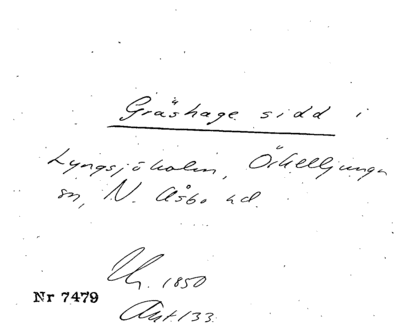 Gräshage sidd i
Lyngsjöholm, Örkelljunga
sn, N. Åsbo hd.
Ch. 1850
Nr 7479
Ant. 133.